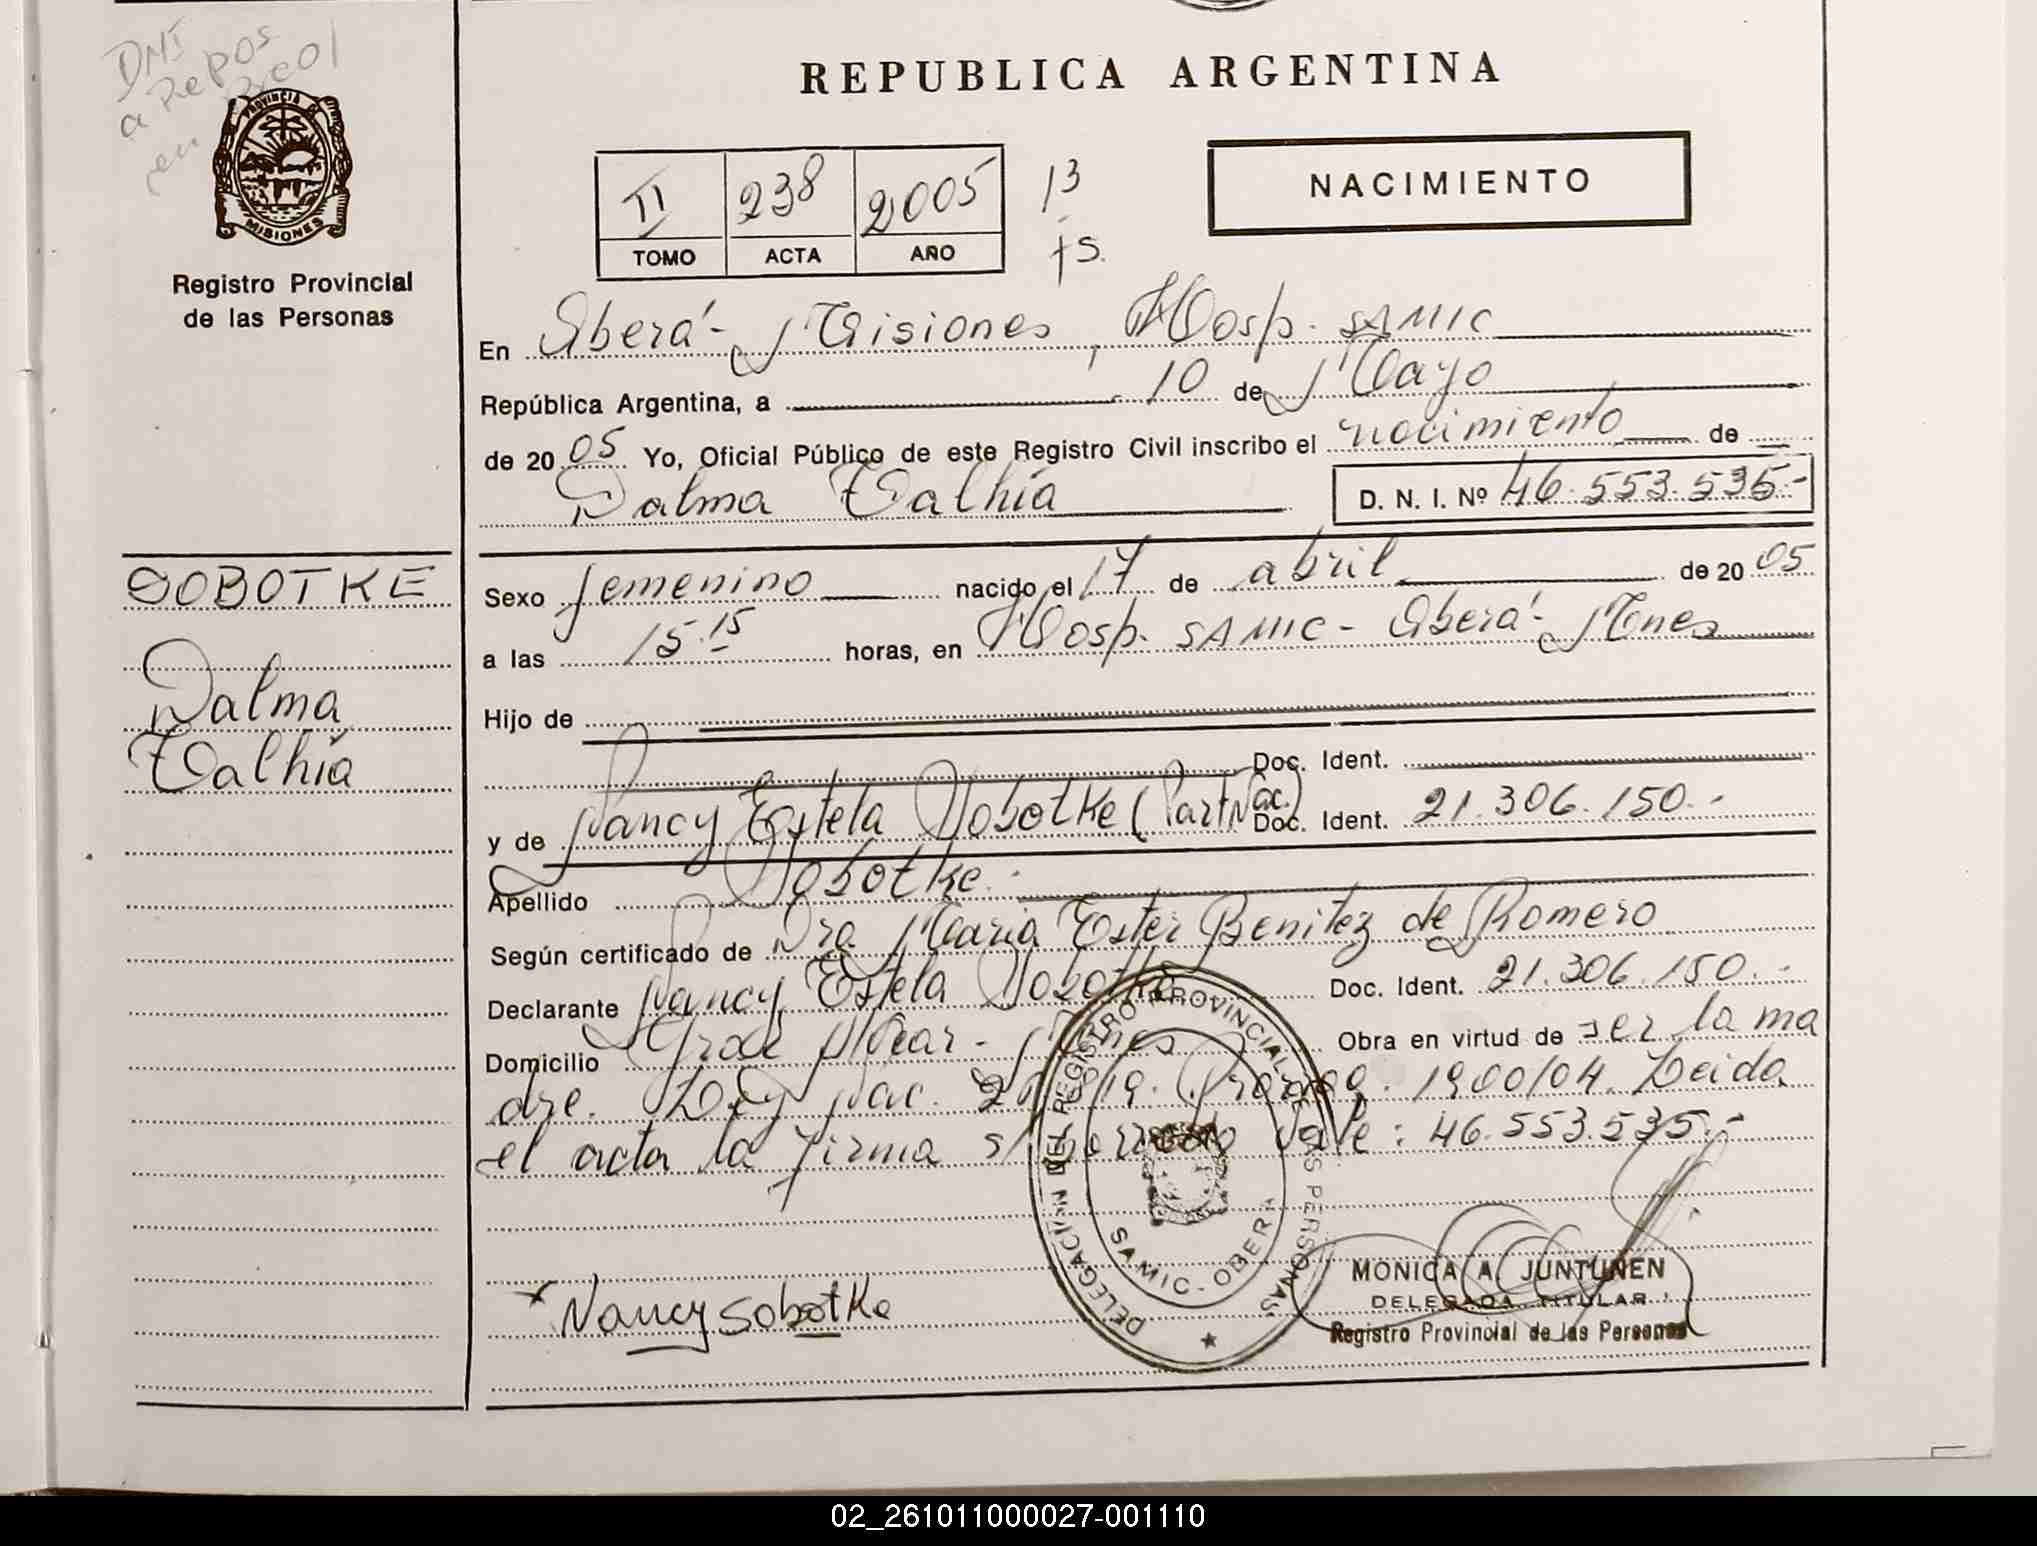 DNI
a Repos
en
PROVINCIA DE
MISIONES
Registro Provincial
de las Personas
REPUBLICA ARGENTINA
II 238 2005 13
TOMO ACTA AÑO fs.
NACIMIENTO
En Oberá - Misiones, Hosp. SAMIC
República Argentina, a 10 de Mayo
de 20 05 Yo, Oficial Público de este Registro Civil inscribo el nacimiento de
Dalma Talhía D. N. I. Nº 46.553.535.-
SOBOTKE
Dalma
Talhía
Sexo femenino nacido el 17 de abril de 20 05
a las 15.15 horas, en Hosp. SAMIC - Oberá - Mnes
Hijo de
Doc. Ident.
y de Nancy Estela Sobotke (Part. Nac.) Doc. Ident. 21.306.150.-
Apellido Sobotke.-
Según certificado de Dra Maria Ester Benitez de Romero
Declarante Nancy Estela Sobotke Doc. Ident. 21.306.150.-
Domicilio Gral Alvear - Mnes Obra en virtud de ser la ma
dre. Ley Nac. 21819. Prorrog. 1900/04. Leida
el acta la firma s/borrado vale: 46.553.535.-
DELEGACION DEL REGISTRO PROVINCIAL DE LAS PERSONAS
SAMIC - OBERA
x Nancy Sobotke
MONICA A. JUNTUNEN
DELEGADA TITULAR
Registro Provincial de las Personas
02_261011000027-001110